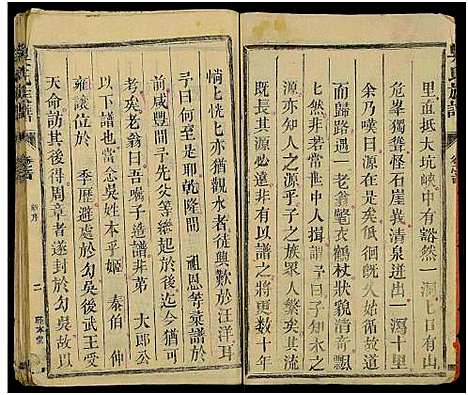 吳氏族譜
里面抵大坑峽中有豁然一洞七日有山
危峯獨聳怪石崖異清泉迸出一瀉十里
余乃嘆曰源在是矣低徊既久始循故道
而歸路遇一老翁鷩衣鶴杖狀貌清奇飄
七然非若常世中人揖謂予曰子知水之
既長其源必遠亦知子之族眾人繁矣其流
更長源更遠乎予自受譜於父數十年
惝七恍七亦猶觀水者徒興歎於汪洋耳
予曰何至是耶乾隆間 祖恩等彙譜於
前咸豐間子先父等繼起於後迄今猶可
考矣老翁曰吾嘱子造譜非第 大郎公
以下譜也當念吳姓本乎姬 泰伯 仲
雍讓位於 季歷避處於勾吳後武王受
天命訪其後得周章者遂封於勾吳故以
吳氏族譜
卷之首
序
二